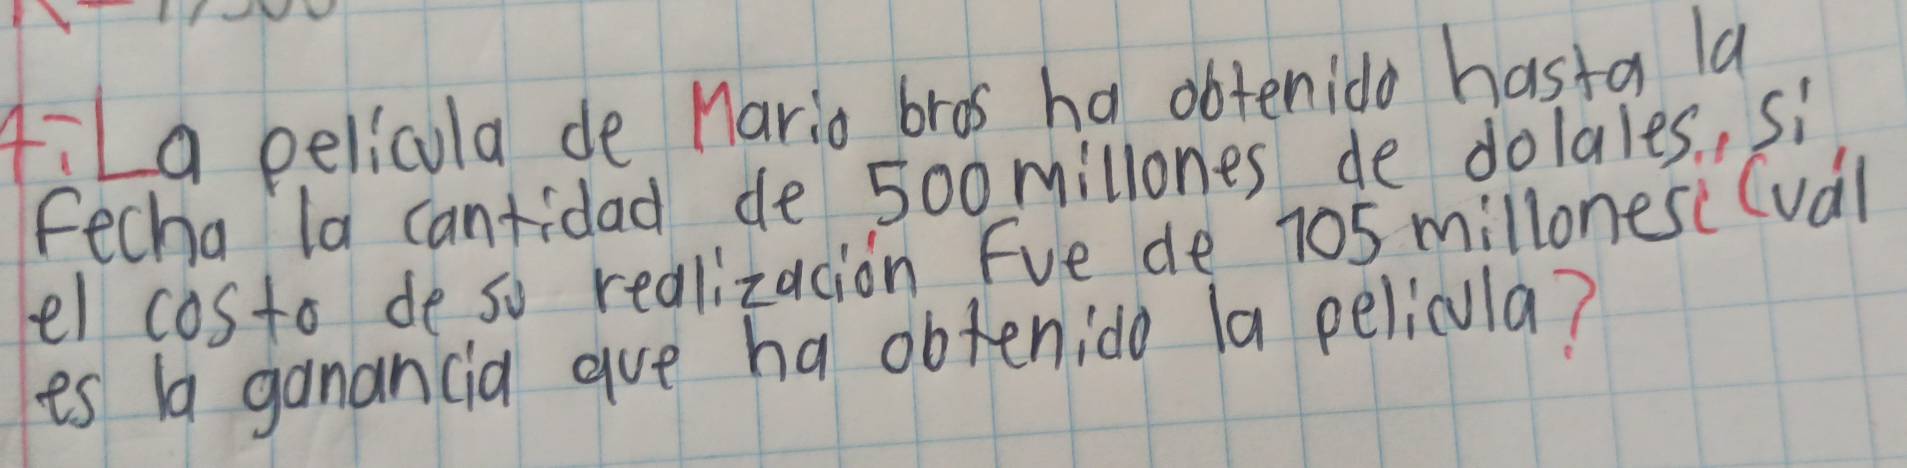 4: La pelicula de Mario bros ha obtenido hasta la
fecha la cantidad de 500 millones de dolales, si
el costo de su realización fue de 105 millones ¿Cuál
es la ganancia que ha obtenido la pelicula?